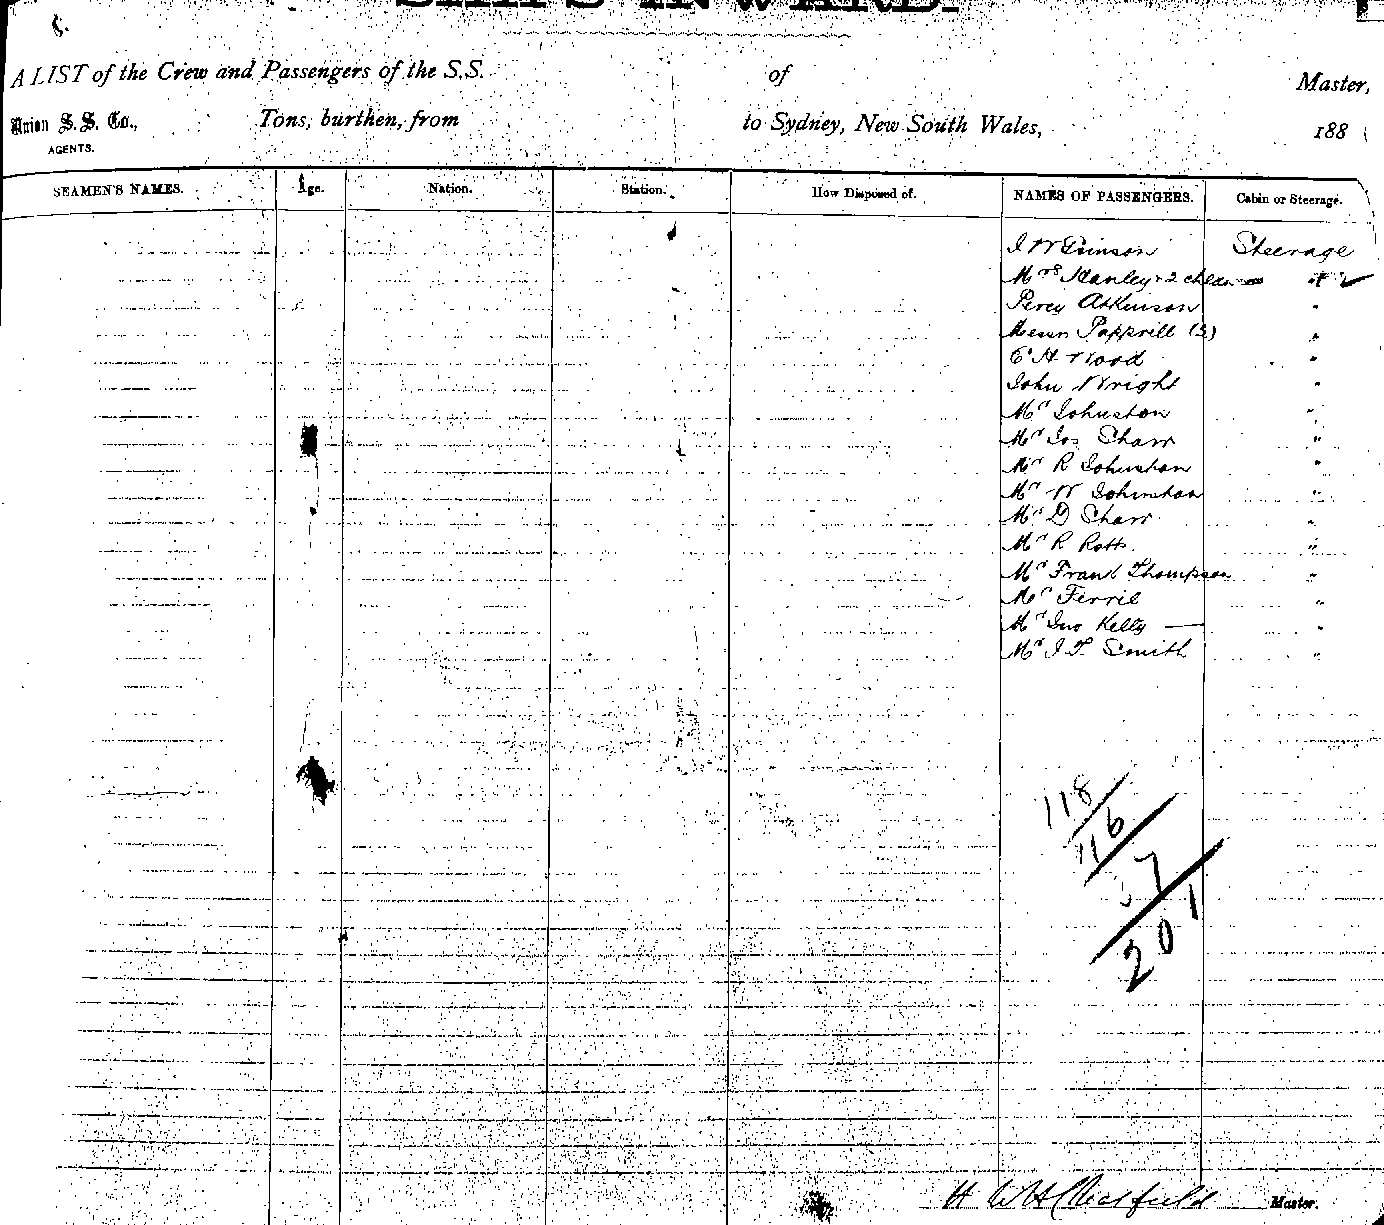 SHIPS INWARD.
A LIST of the Crew and Passengers of the S.S. of Master,
Union S. S. Co., Tons, burthen, from to Sydney, New South Wales, 188
AGENTS.
SEAMEN'S NAMES. Age. Nation. Station. How Disposed of. NAMES OF PASSENGERS. Cabin or Steerage.
J W Steerage
Mrs Stanley & 2 "
Percy Atkinson "
Messrs Papprill (3) "
C H Wood "
John Wright "
Mr Johnston "
Mr Jos Shaw "
Mr R Johnston "
Mr W Johnston "
Mr D Shaw "
Mr R "
Mr Frank Thompson "
Mr Ferril "
Mr Jno Kelly — "
Mr J T Smith "
118
116
7
201
H Master.